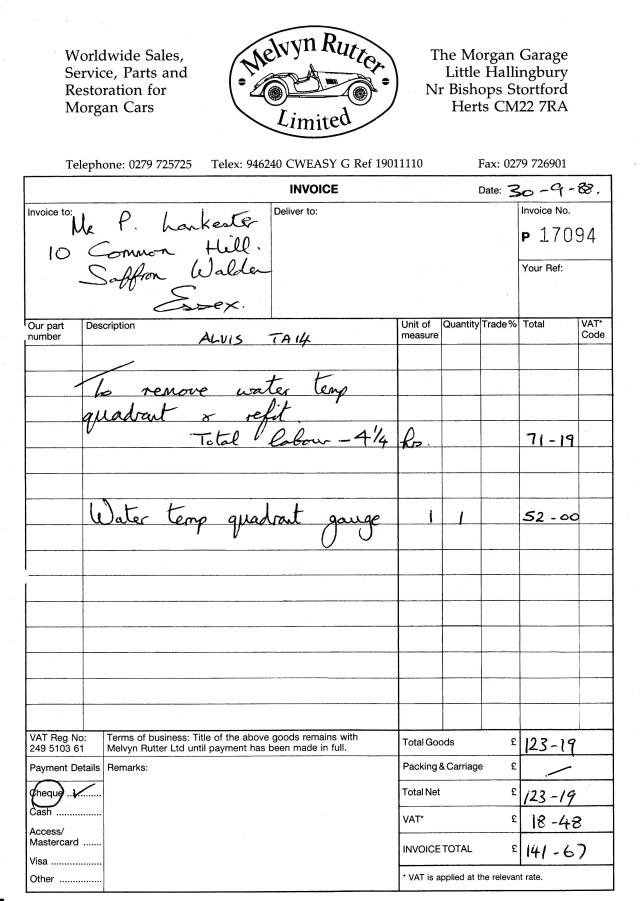 Worldwide Sales,
Service, Parts and
Restoration for
Morgan Cars
Melvyn Rutter
Limited
The Morgan Garage
Little Hallingbury
Nr Bishops Stortford
Herts CM22 7RA
Telephone: 0279 725725 Telex: 946240 CWEASY G Ref 19011110 Fax: 0279 726901
INVOICE
Date: 30-9-88.
Invoice to:
Mr P. Lankester
10 Common Hill.
Saffron Walden
Essex.
Deliver to:
Invoice No.
P 17094
Your Ref:
Our part number Description Unit of measure Quantity Trade % Total VAT* Code
ALVIS TA14
To remove water temp
quadrant & refit.
Total labour - 4 1/4 hrs. 71-19
Water temp quadrant gauge 1 1 52-00
VAT Reg No:
249 5103 61
Terms of business: Title of the above goods remains with
Melvyn Rutter Ltd until payment has been made in full.
Payment Details
Cheque ..✓.......
Cash ................
Access/
Mastercard ......
Visa ..................
Other ...............
Remarks:
Total Goods £ 123-19
Packing & Carriage £ /
Total Net £ 123-19
VAT* £ 18-48
INVOICE TOTAL £ 141-67
* VAT is applied at the relevant rate.